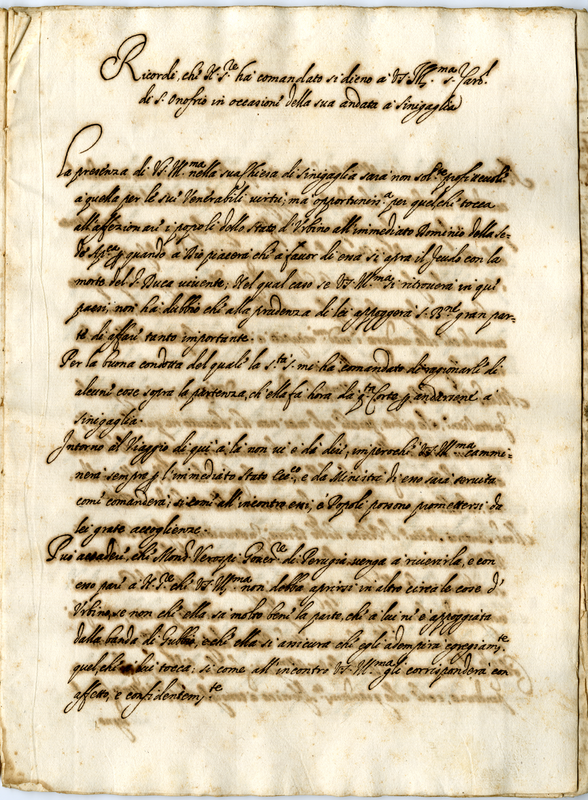 Ricordi, che N. S.re ha comandato si dieno a VS. Ill.ma s.r Card.l
di S. Onofrio in occasione della sua andata a Sinigaglia
La presenza di VS. Ill.ma nella sua Chiesa di Sinigaglia sarà non sol.te profittevole
a quella per le sue Venerabili virtù; ma opportuniss.a per quel che tocca
all'affezionare i popoli dello Stato d'Urbino all'immediato Dominio della se-
de Ap.ca quando a Dio piacerà che a favor di essa si apra il feudo con la
morte del S. Duca vivente; Nel qual caso se VS. Ill.ma si ritroverà in quei
paesi, non ha dubbio che alla prudenza di lei appoggerà S. B.ne gran par-
te di affari tanto importante.
Per la buona condotta del quale la S.tà S. mi ha comandato di ragionarle di
alcune cose sopra la partenza, ch'ella fa hora da q.ta Corte p. andarsene a
Sinigaglia.
Intorno al Viaggio di qui a là non vi è da dire, imperochè VS. Ill.ma cammi-
nerà sempre p. l'immediato Stato Ecc.co, e da Ministri di esso sarà servita
come comanderà; si come all'incontro essi, e Popoli possono promettersi da
lei grate accoglienze.
Può accadere, che Mons.r Verospi Gover.re di Perugia venga a riceverla, e con
esso pare a N. S.re che VS. Ill.ma non debba aprirsi in altro circa le cose d'
Urbino, se non che ella sa molto bene la parte, che a lui n'è appoggiata
dalla banda di Gubbio, e che ella si assicura che egli adempirà egregiam.te
quel che a lui tocca; si come all'incontro VS. Ill.ma gli corrisponderà con
affetto, e confidentem.te